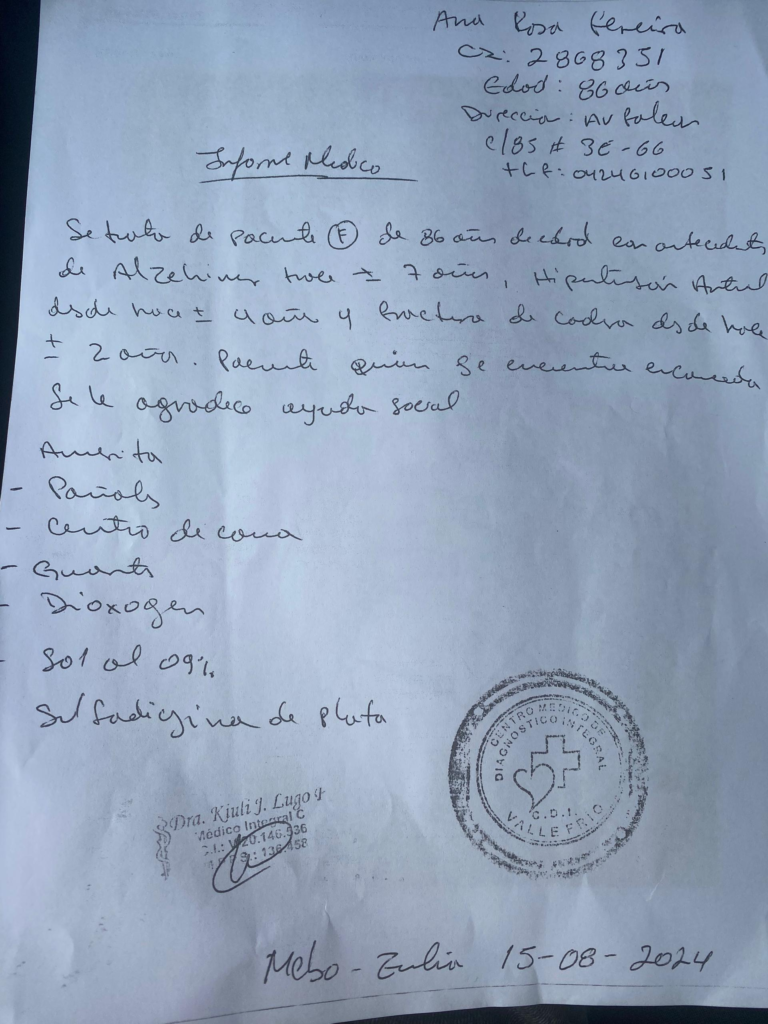 Ana Rosa Pereira
CI: 2868351
Edad: 86 años
Dirección: Av
c/85 # 3E-66
tlf: 04246100051
Informe Medico
Se trata de paciente (F) de 86 años de edad con antecedentes
de Alzehimer hace ± 7 años, Hipertensión Arterial
desde hace ± 4 años y fractura de cadera desde hace
± 2 años. Paciente quien se encuentra encamada
Se le agradece ayuda social
Amerita
- Pañales
- Centro de cama
- Guantes
- Dioxogen
- Sol al 09%
Sulfadiazina de plata
CENTRO MEDICO DE
DIAGNOSTICO INTEGRAL
C.D.I.
VALLE FRIO
Dra. Kiuli J. Lugo F
Médico Integral C
C.I.: V 20.146.536
136.458
Mcbo - Zulia 15-08-2024